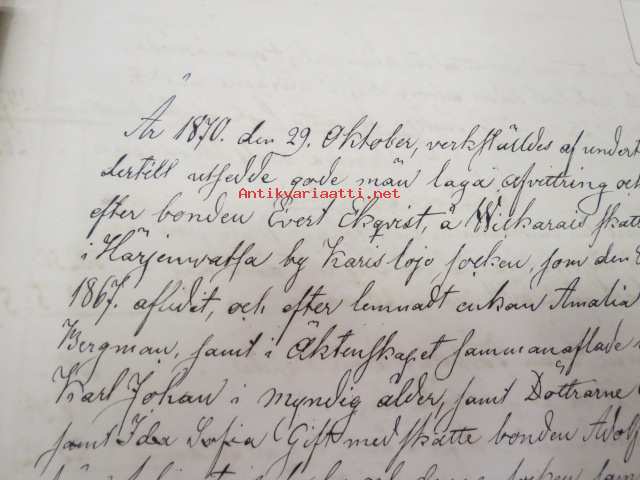 År 1870. den 29. Oktober, verkstäldes af undert
dertill utsedde gode män laga afvittring och
Antikvariaatti.net
efter bonden Evert Ekqvist, å Wilkarais skatte
i Härjenvatsa by Karislojo socken, som den
1867. aflidit, och efter lemnadt enkan Amalia
Bergman, samt i Äktenskapet sammanaflade
Karl Johan i myndig ålder, samt Döttrarne
samt Ida Sofia (Gift med skatte bonden Adolf
socken sam